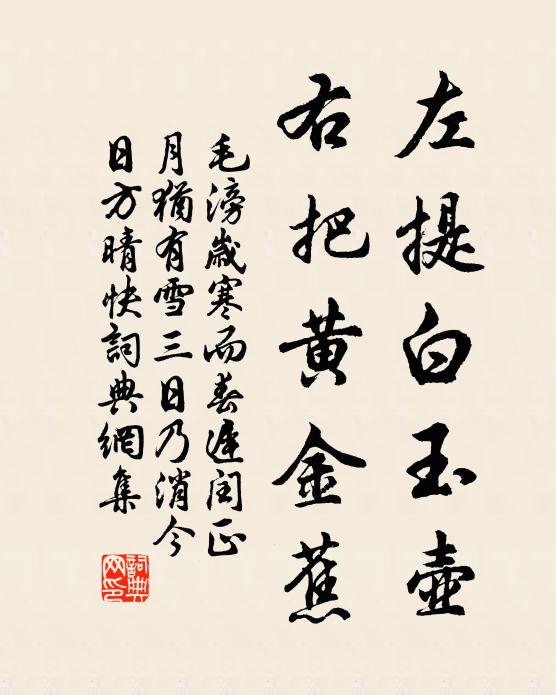 左提白玉壺
右把黄金蕉
毛滂歲寒而春遲閏正
月猶有雪三日乃消今
日方晴快詞典網集
詞典网印